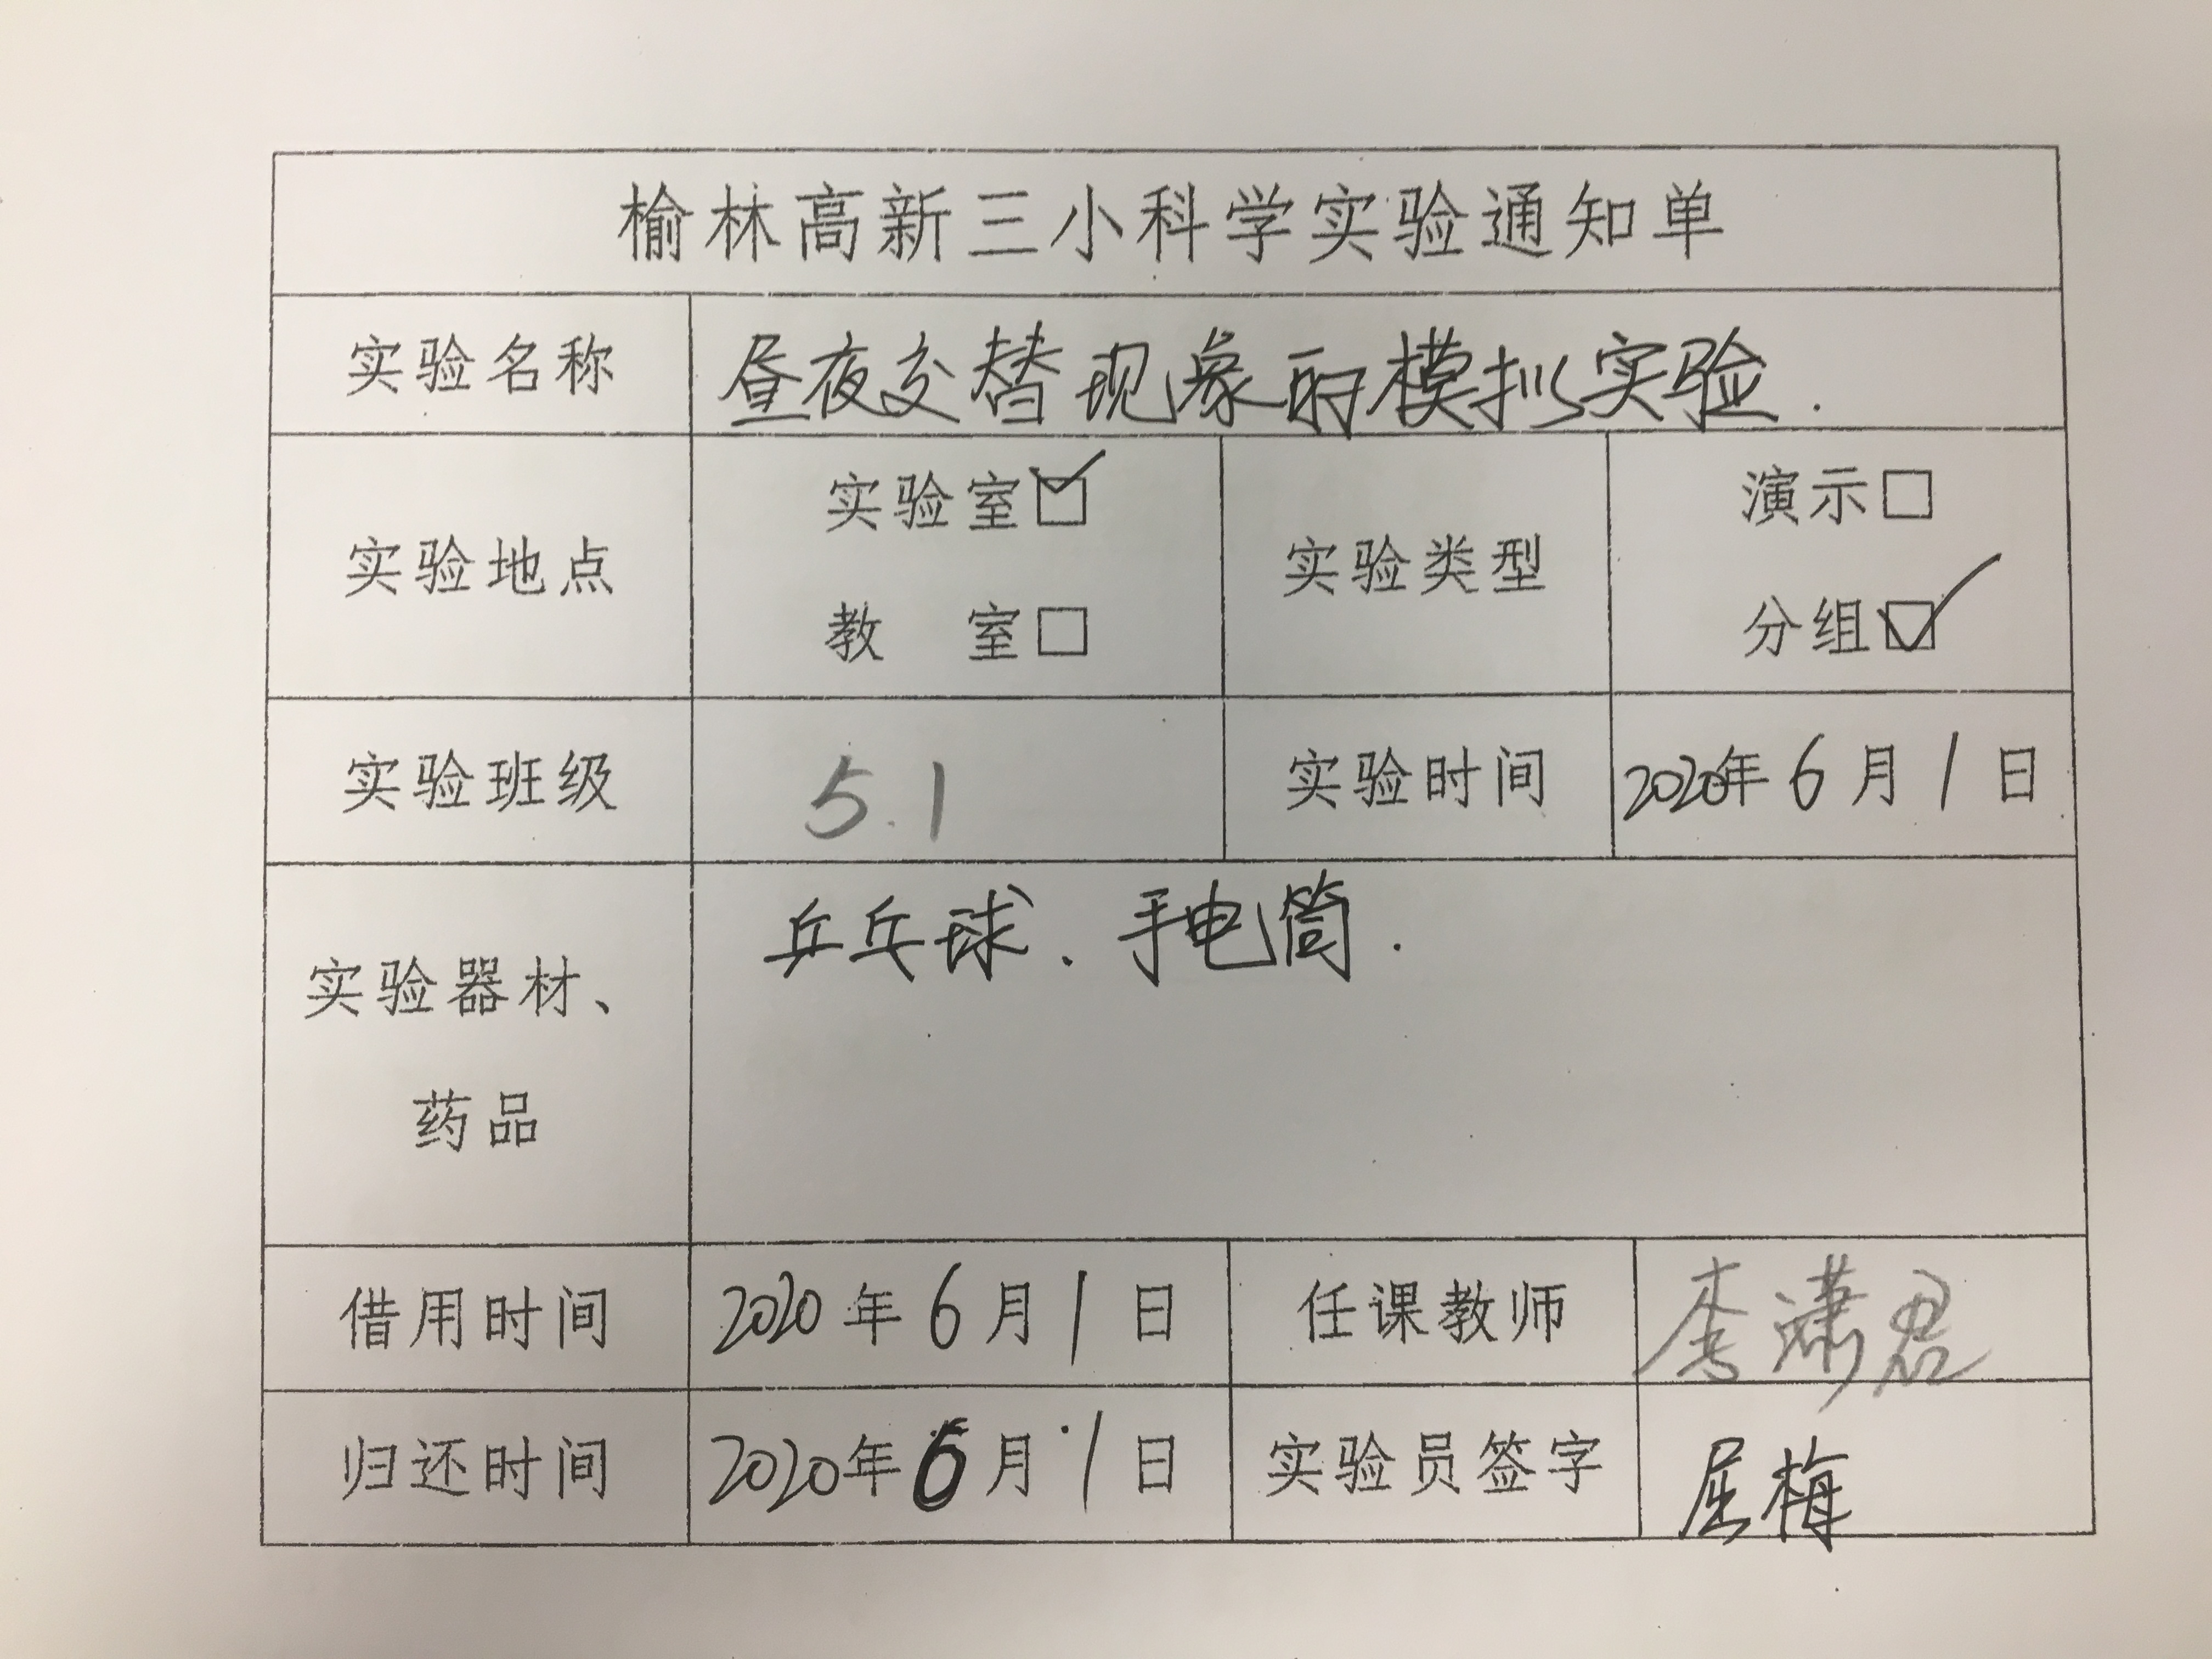 榆林高新三小科学实验通知单
实验名称 昼夜交替现象的模拟实验.
实验室☑ 演示□
实验地点 实验类型
教 室□ 分组☑
实验班级 5.1 实验时间 2020年6月1日
乒乓球、手电筒.
实验器材、
药品
借用时间 2020年6月1日 任课教师 李潇君
归还时间 2020年6月1日 实验员签字 屈梅